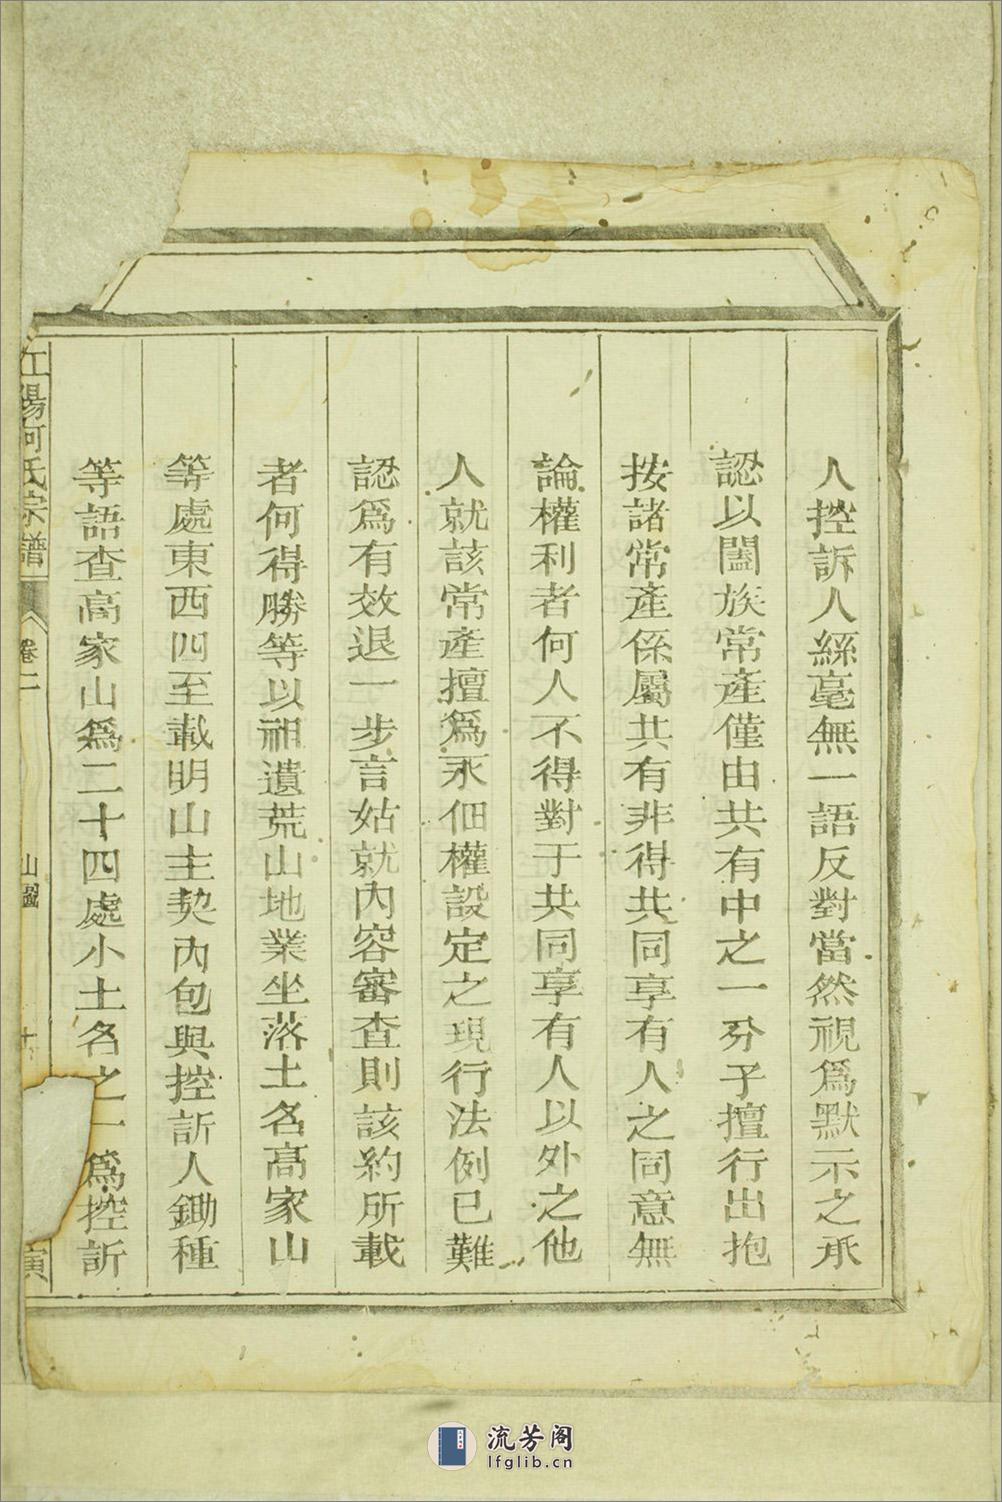 人控訴人絲毫無一語反對當然視爲默示之承
認以闔族常產僅由共有中之一分子擅行出抱
按諸常產係屬共有非得共同享有人之同意無
論權利者何人不得對于共同享有人以外之他
人就該常產擅爲永佃權設定之現行法例已難
認爲有效退一步言姑就內容審查則該約所載
者何得勝等以祖遺荒山地業坐落土名高家山
等處東西四至載明山主契內包與控訴人鋤種
等語查高家山爲二十四處小土名之一爲控訴
江陽何氏宗譜
卷二
山
十
流芳阁
lfglib.cn